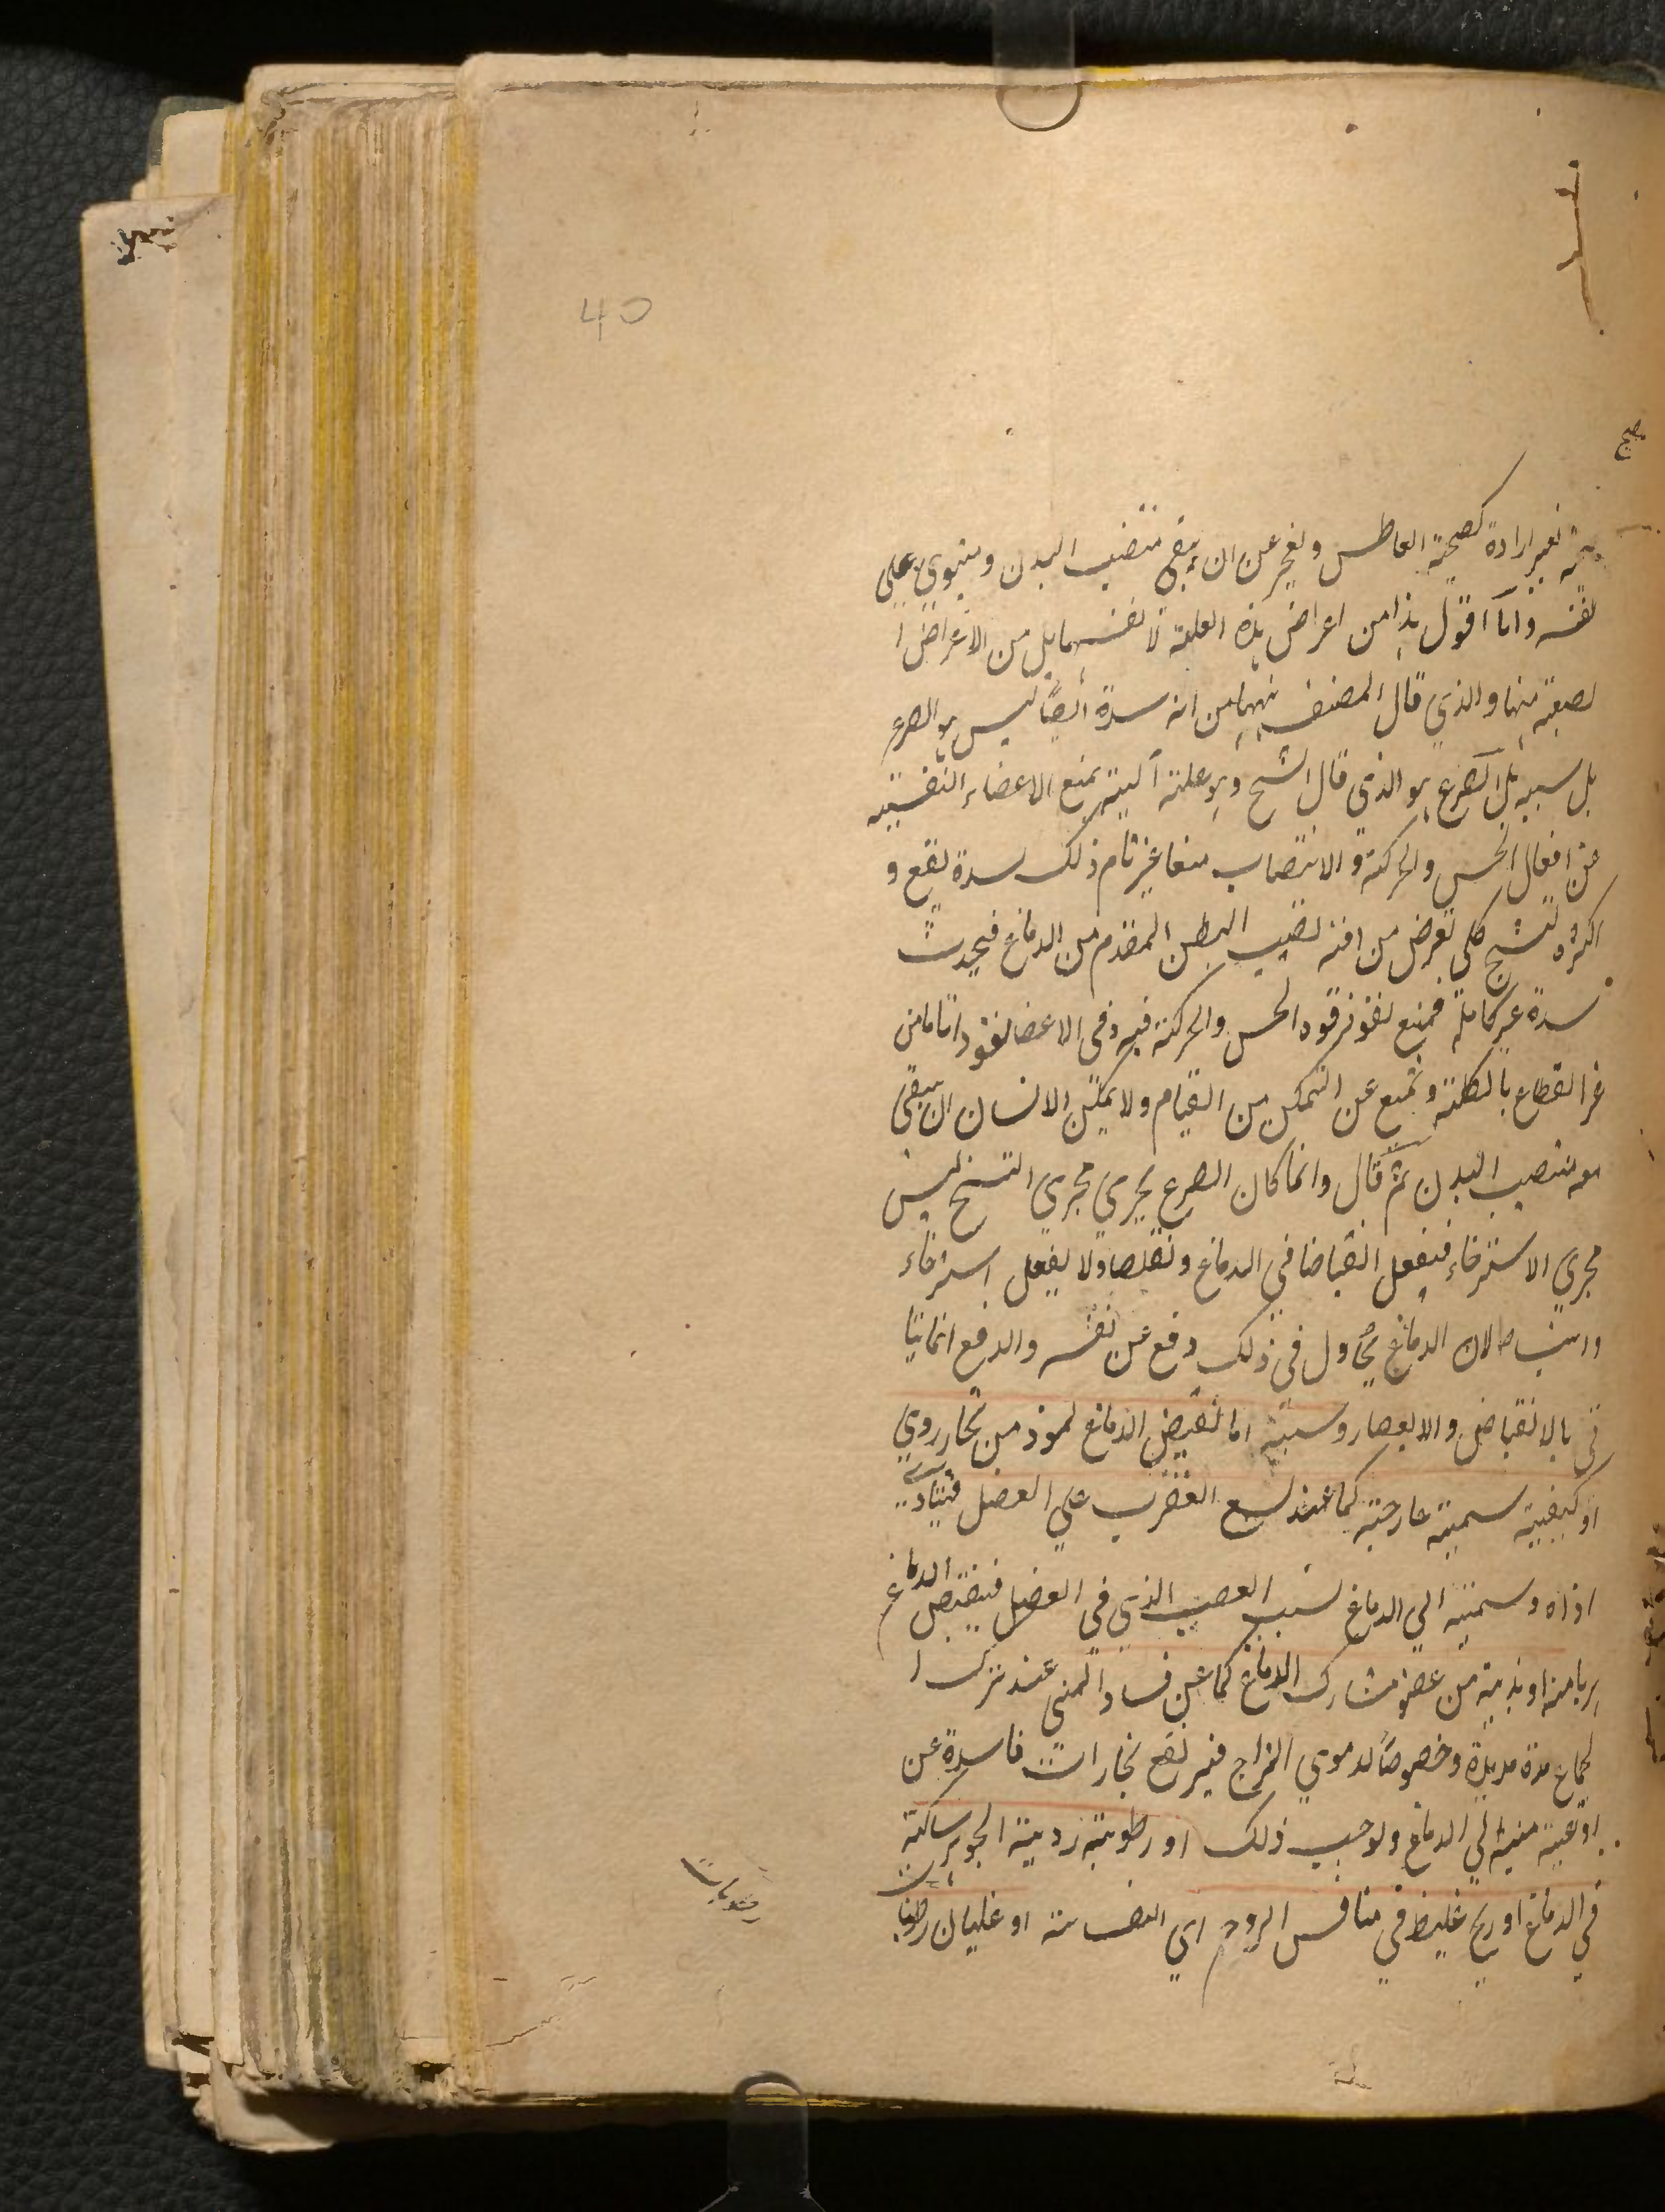 40
صح
بغير ارادة كصيحة العاطس ويعجز عن ان يبقى منتصب البدن ويستوي على
نفسه وانا اقول هذا من اعراض هذه العلة لا نفسها بل من الاعراض ا
منها والذي قال المصنف من انه سدة ايضا ليس هو الصرع
بل سببه بل الصرع هو الذي قال الشيخ وهو علة آلية تمنع الاعضاء النفسية
عن افعال الحس والحركة والانتصاب منعا غير تام ذلك لسدة تقع و
اكثره لتشنج كلي تعرض من افة تصيب البطن المقدم من الدماغ فيحدث
سدة غير كاملة فيمنع نفوذ قوة الحس والحركة فيه وفي الاعضا نفوذا تاما من
غير انقطاع بالكلية وتمنع عن التمكن من القيام ولا يمكن الانسان ان يبقى
معه منتصب البدن ثم قال وانما كان الصرع يجري مجرى التشنج ليس
مجرى الاسترخاء فيفعل انقباضا في الدماغ وتقلصا ولا يفعل استرخاء
وانبساطا لان الدماغ يحاول في ذلك دفع عن نفسه والدفع انما يتا
تى بالانقباض والانعصار وسببه اما تقبض الدماغ لموذ من بخار ردي
او كيفية سمية خارجية كما عند لسع العقرب على العضل فيتادى
اذاه وسميته الى الدماغ لسبب العصب الذي في العضل فينقبض الدماغ
هربا منه او بدنية من عضو مشارك الدماغ كما عن فساد المني عند ترك ا
لجماع مدة مديدة وخصوصا لدموي المزاج فيرتفع بخارات فاسدة عن
اوعية منيه الى الدماغ ويوجب ذلك او رطوبة ردية الجوهر ساكنة
في الدماغ او ريح غليظ في منافس الروح اي النفسانية او غليان رطوبات